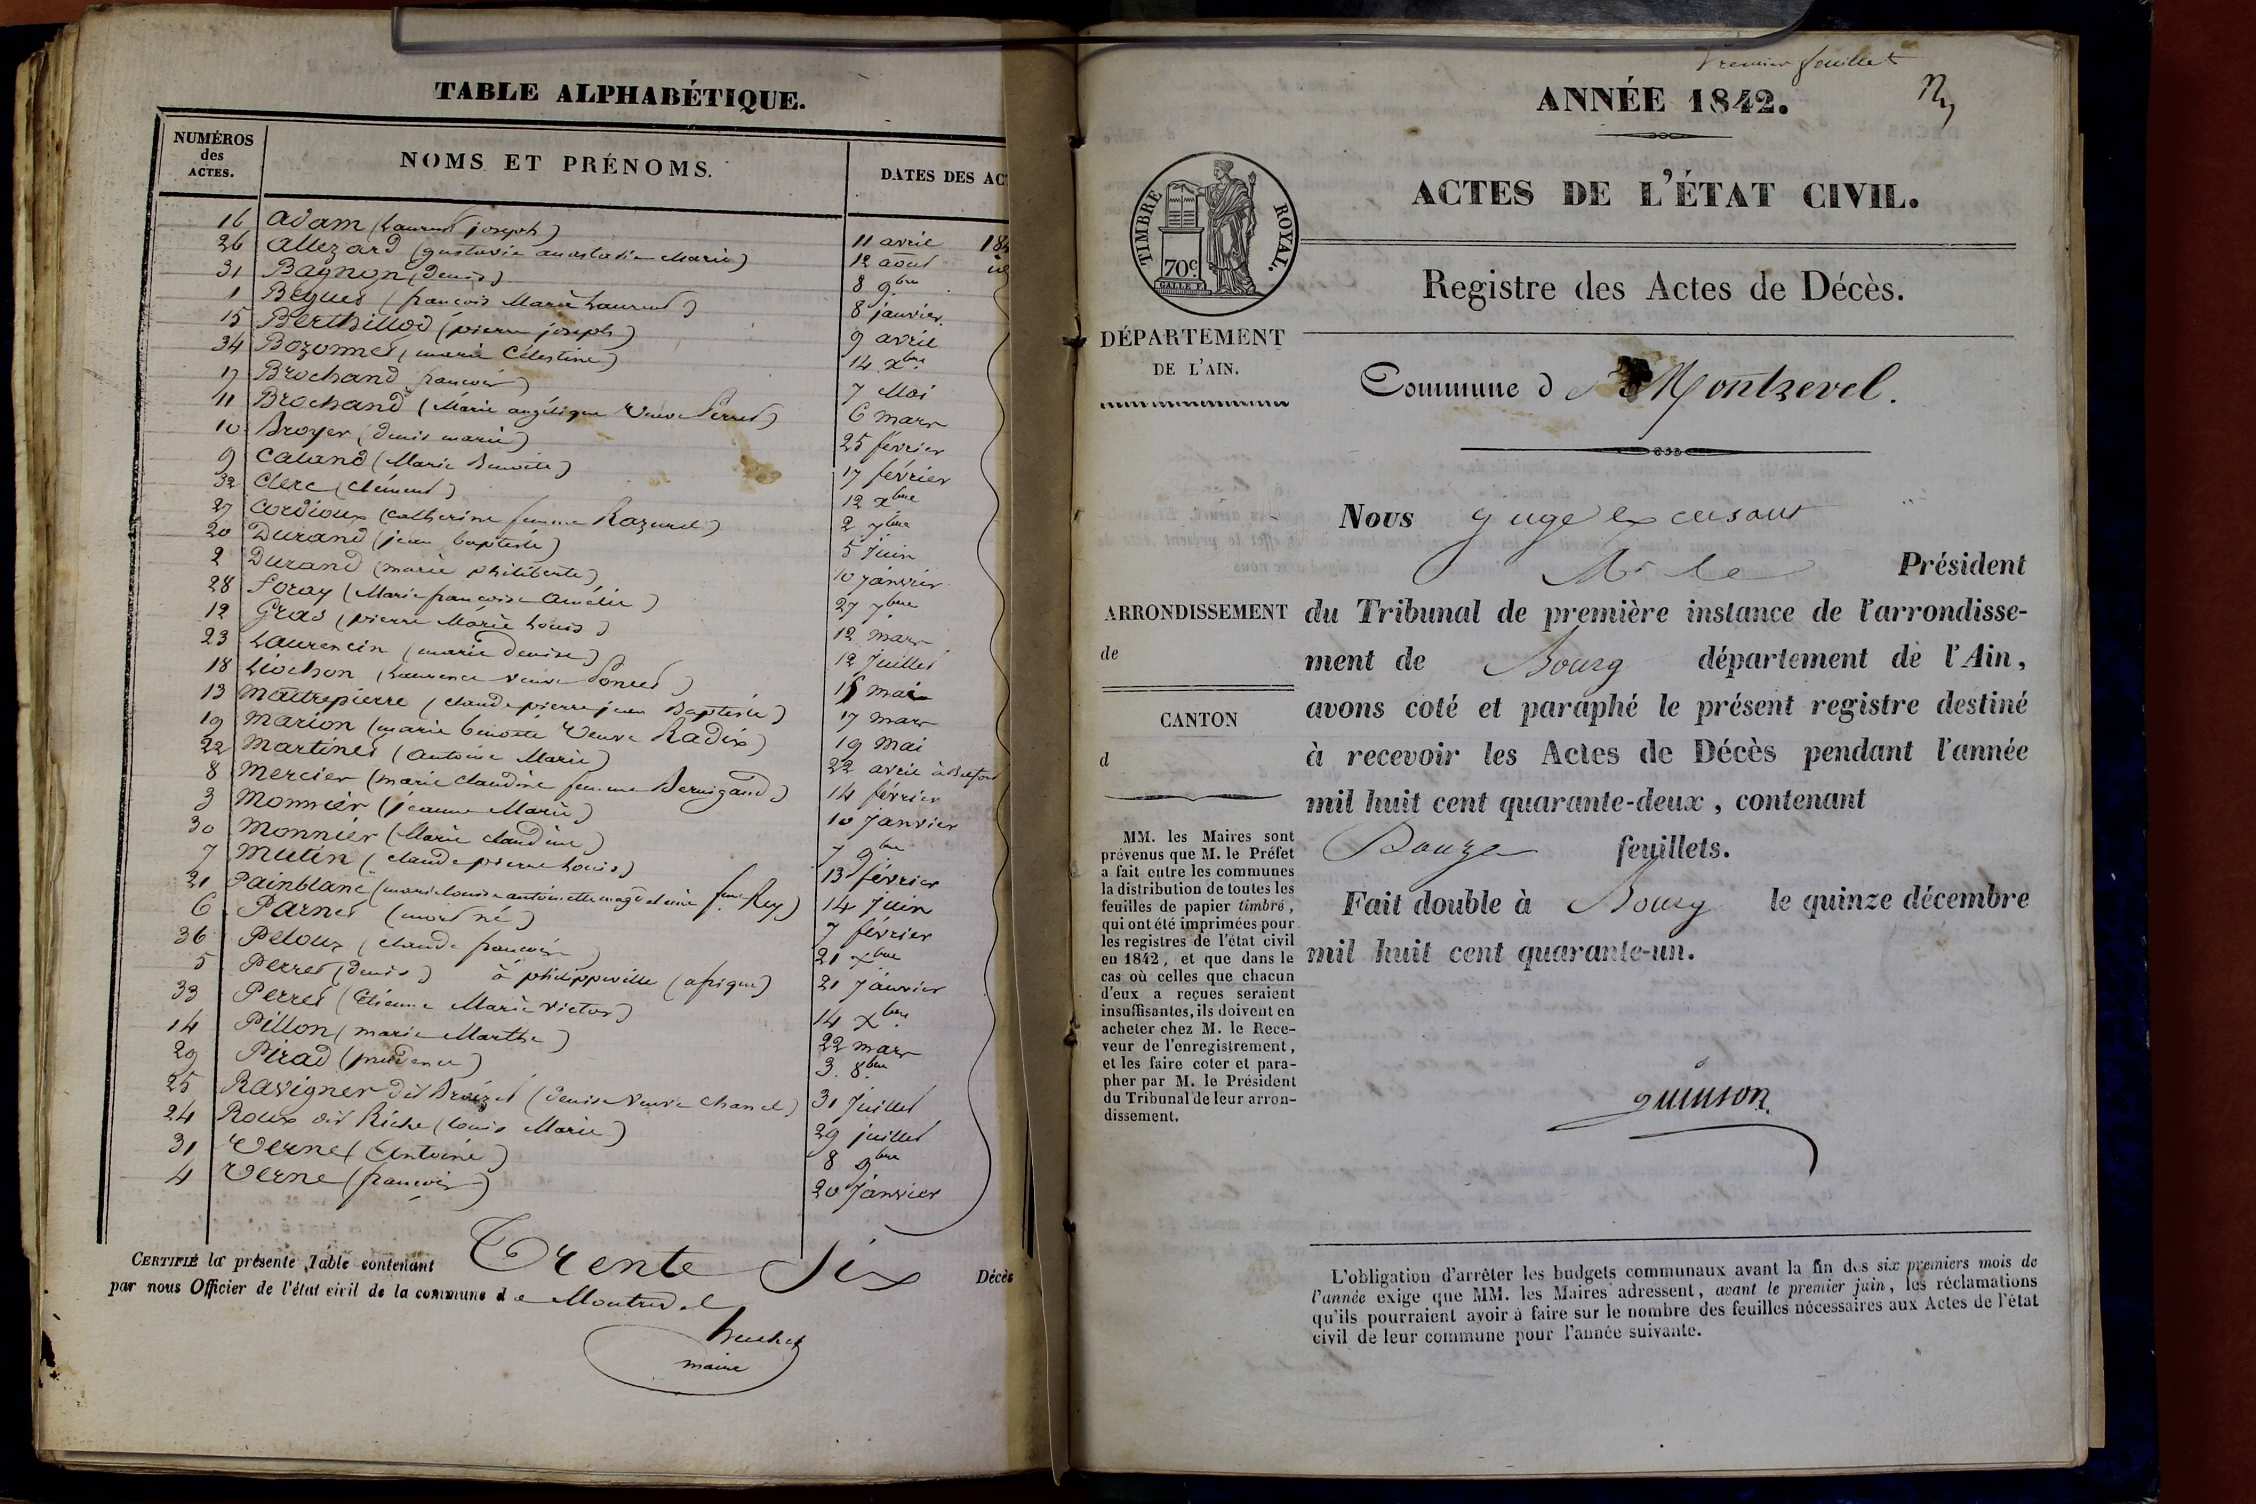 TABLE ALPHABÉTIQUE.
NUMÉROS des ACTES. NOMS ET PRÉNOMS. DATES DES AC
16 Adam (Laurent joseph) 11 avril 184
26 Allezard (gustavie anastasie Marie) 12 août
31 Bagnon (Denis) 8 9bre
1 Béques (françois Marie Laurent) 8 janvier
15 Berthillod (pierre joseph) 9 avril
34 Bozonnet (marie Célestine) 14 xbre
17 Brochand (françois) 7 Mai
11 Brochand (Marie angélique Veuve Perret) 6 mars
10 Broyer (denis marie) 25 février
9 Caland (Marie Benoite) 17 février
32 Clerc (Clément) 12 xbre
27 Cordioux (Catherine femme Razurel) 2 7bre
20 Durand (jean baptiste) 5 Juin
2 Durand (marie philiberte) 10 Janvier
28 Foray (Marie françoise Amélie) 27 7bre
12 Gras (pierre Marie Louis) 12 mars
23 Laurencin (marie denise) 12 Juillet
18 Liochon (Laurence veuve Poncet) 15 mai
13 Maitrepierre (claude pierre jean Baptiste) 17 mars
19 Marion (marie benoite Veuve Radix) 19 Mai
22 Martinet (Antoine Marie) 22 avril à Belfort
8 Mercier (marie Claudine femme Bernigaud) 14 février
3 Monnier (jeanne Marie) 10 Janvier
30 Monnier (Marie claudine) 7 9bre
7 Mutin (claude pierre Louis) 13 février
21 Painblanc (marie louise antoinette magdeleine fme Rey) 14 Juin
6 Parnet (mort né) 7 février
36 Peloux (claude françois) 21 xbre
5 Perret (denis) à philippeville (afrique) 21 Janvier
33 Perret (Etienne Marie Victor) 14 xbre
14 Pillon (marie Marthe) 22 mars
29 Pirad (prudence) 3 8bre
25 Ravigner dit (denise veuve Chanel) 31 Juillet
24 Roux dit Riche (louis Marie) 29 juillet
31 Verne (Antoine) 8 9bre
4 Verne (françois) 20 Janvier
CERTIFIÉ la présente Table contenant Trente Six Décès
par nous Officier de l'état civil de la commune de Montrevel
maire
Premier feuillet
ANNÉE 1842.
ACTES DE L'ÉTAT CIVIL.
TIMBRE ROYAL.
70c
Registre des Actes de Décès.
DÉPARTEMENT
DE L'AIN.
Commune d Montrevel.
Nous Juge en excusant
Mr le Président
ARRONDISSEMENT
de
CANTON
d
du Tribunal de première instance de l'arrondisse-
ment de Bourg département de l'Ain,
avons coté et paraphé le présent registre destiné
à recevoir les Actes de Décès pendant l'année
mil huit cent quarante-deux, contenant
Douze feuillets.
Fait double à Bourg le quinze décembre
mil huit cent quarante-un.
quinson
MM. les Maires sont
prévenus que M. le Préfet
a fait entre les communes
la distribution de toutes les
feuilles de papier timbré,
qui ont été imprimées pour
les registres de l'état civil
en 1842, et que dans le
cas où celles que chacun
d'eux a reçues seraient
insuffisantes, ils doivent en
acheter chez M. le Rece-
veur de l'enregistrement,
et les faire coter et para-
pher par M. le Président
du Tribunal de leur arron-
dissement.
L'obligation d'arrêter les budgets communaux avant la fin des six premiers mois de
l'année exige que MM. les Maires adressent, avant le premier juin, les réclamations
qu'ils pourraient avoir à faire sur le nombre des feuilles nécessaires aux Actes de l'état
civil de leur commune pour l'année suivante.